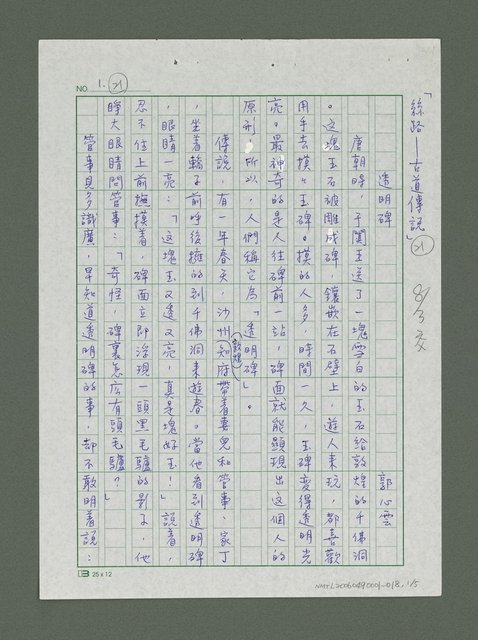 「絲路——古道傳說」(21)
8/3交
透明碑
郭心雲
唐朝時，于闐王送了一塊雪白的玉石給敦煌的千佛洞
。這塊玉石被雕成碑，鑲嵌在石壁上，遊人來玩，都喜歡
用手去摸玉碑。摸的人多，時間一久，玉碑變得透明光
亮。最神奇的是人往碑前一站，碑面就能顯現出這個人的
原形，所以，人們稱它為「透明碑」。
傳說，有一年春天，沙州(敦煌)知府帶着妻兒和管事、家丁
，坐着轎子前呼後擁的到千佛洞來遊春。當他看到透明碑
，眼睛一亮：「這塊玉又透又亮，真是塊好玉！」說着，
忍不住上前撫摸着，碑面立即浮現一頭黑毛驢的影子，他
睜大眼睛問管事：「奇怪，碑裏怎麼有頭毛驢？」
管事見多識廣，早知道透明碑的事，却不敢明着說：
NO. 1. (21)
25 x 12
NMTL20060490001-018, 1/5